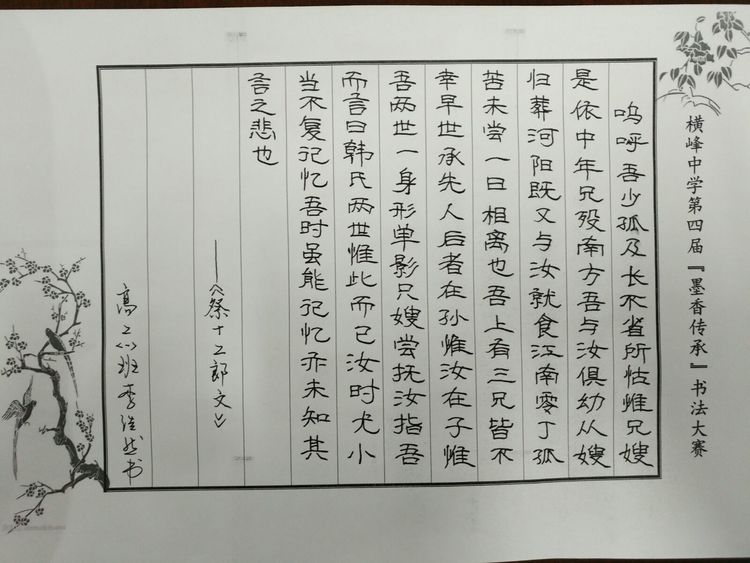 横峰中学第四届『墨香传承』书法大赛
呜呼吾少孤及长不省所怙惟兄嫂
是依中年兄殁南方吾与汝俱幼从嫂
归葬河阳既又与汝就食江南零丁孤
苦未尝一日相离也吾上有三兄皆不
幸早世承先人后者在孙惟汝在子惟
吾两世一身形单影只嫂尝抚汝指吾
而言曰韩氏两世惟此而已汝时尤小
当不复记忆吾时虽能记忆亦未知其
言之悲也
——《祭十二郎文》
高二(1)班李浩然书